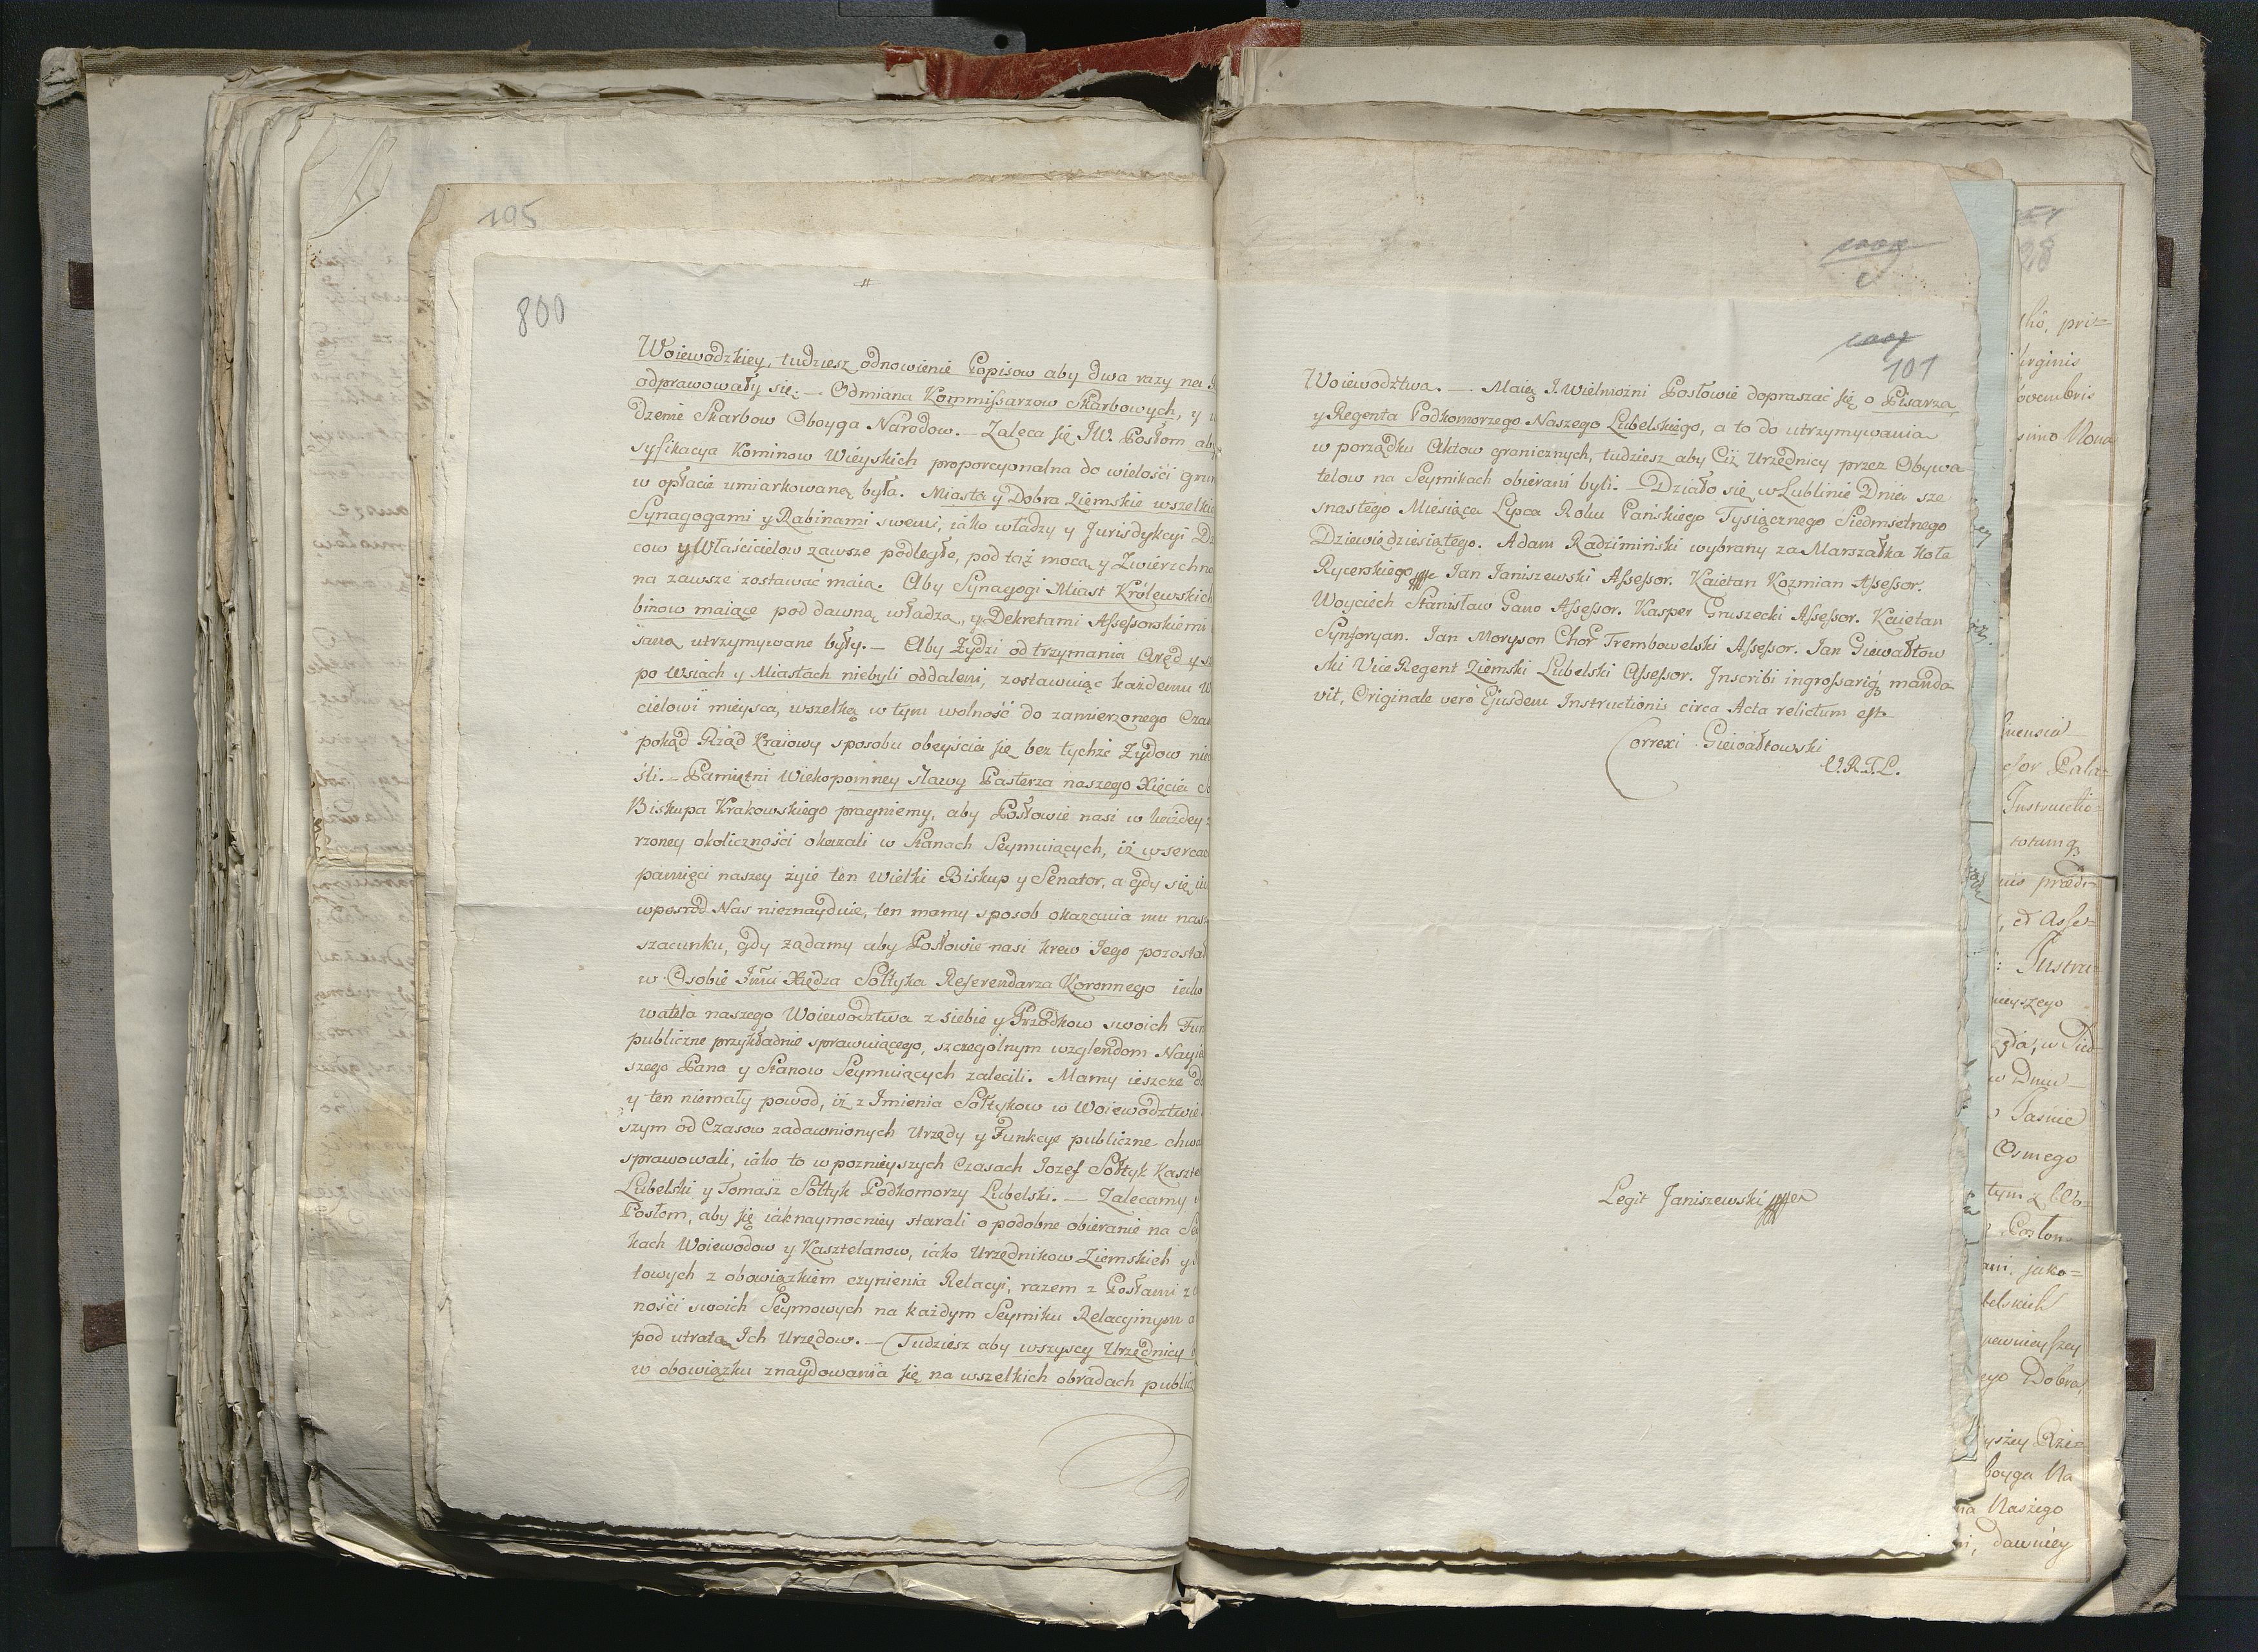 105
800
Woiewodzkiey, tudziesz odnowienie Popisow aby dwa razy na
odprawowały się. — Odmiana Kommissarzow Skarbowych, y
dzenie Skarbow Oboyga Narodow. — Zaleca się JW. Posłom aby
syfikacya Kominow Wieyskich proporcyonalna do wielości grun
w opłacie umiarkowaną była. Miasta y Dobra Ziemskie wszelkie
Synagogami y Rabinami swemi, iako władzy y Jurisdykcyi Dz
cow y Właścicielow zawsze podległe, pod taż mocą y Zwierzchno
na zawsze zostawać maią. Aby Synagogi Miast Królewskich
binow maiące pod dawną władzą, y Dekretami Assessorskiemi
saną utrzymywane były. — Aby Żydzi od trzymania Aręd y sz
po Wsiach y Miastach niebyli oddaleni, zostawuiąc każdemu W
cielowi mieysca, wszelką w tym wolność do zamierzonego Czas
pokąd Rząd Kraiowy sposobu obeyścia się bez tychże Żydow nie
śli. — Pamiętni Wiekopomney sławy Pasterza naszego Xięcia
Biskupa Krakowskiego pragniemy, aby Posłowie nasi w każdey
rzoney okoliczności okazali w Stanach Seymuiących, iż w sercac
pamięci naszey żyie ten Wielki Biskup y Senator, a gdy się iu
wposrod Nas nieznayduie, ten mamy sposob okazania mu nasz
szacunku, gdy ządamy aby Posłowie nasi krew Jego pozostał
w Osobie Jmci Xiędza Sołtyka Referendarza Koronnego iako
watela naszego Woiewodztwa z siebie y Przodkow swoich Fun
publiczne przykładnie sprawuiącego, szczególnym wzglendom Nayia
szego Pana y Stanow Seymuiących zalecili. Mamy ieszcze do
y ten niemały powod, iż z Imienia Sołtykow w Woiewodztwie
szym od Czasow zadawnionych Urzędy y Funkcye publiczne chwa
sprawowali, iako to w poznieyszych Czasach Jozef Sołtyk Kaszte
Lubelski y Tomasz Sołtyk Podkomorzy Lubelski. — Zalecamy
Posłom, aby się iaknaymocniey starali o podobne obieranie na Se
kach Woiewodow y Kasztelanow, iako Urzędnikow Ziemskich y
towych z obowiązkiem czynienia Relacyi, razem z Posłami z
ności swoich Seymowych na każdym Seymiku Relacyinym
pod utratą Ich Urzędow. — Tudziesz aby wszyscy Urzędnicy
w obowiązku znaydowania się na wszelkich obradach publicz
101
Woiewodztwa. — Maią J. Wielmożni Posłowie dopraszać się o Pisarza
y Regenta Podkomorzego Naszego Lubelskiego, a to do utrzymywania
w porządku Aktow granicznych, tudziesz aby Ciż Urzędnicy przez Obywa
telow na Seymikach obierani byli. — Działo się w Lublinie Dnia sze
snastego Miesiąca Lipca Roku Pańskiego Tysiącznego Siedmsetnego
Dziewiędziesiątego. Adam Radzimiński wybrany za Marszałka Koła
Rycerskiego Jan Janiszewski Assessor. Kaietan Kozmian Assessor.
Woyciech Stanisław Gano Assessor. Kasper Gruszecki Assessor. Kaietan
Synforyan. Jan Moryson Chor Trembowelski Assessor. Jan Giewałtow
ski Vice Regent Ziemski Lubelski Assessor. Inscribi ingrossariq manda
vit, Originale vero Ejusdem Instructionis circa Acta relictum est.
Correxi Giewałtowski
V.R.T.L.
Legit Janiszewski
28
pri=
Virginis
ovembris
simo Nona
Pala=
Instructio
totamq
et Asses=
Instru=
w Dniu
Osmego
belskich
Dobra
boyga Na
Naszego
dawniey